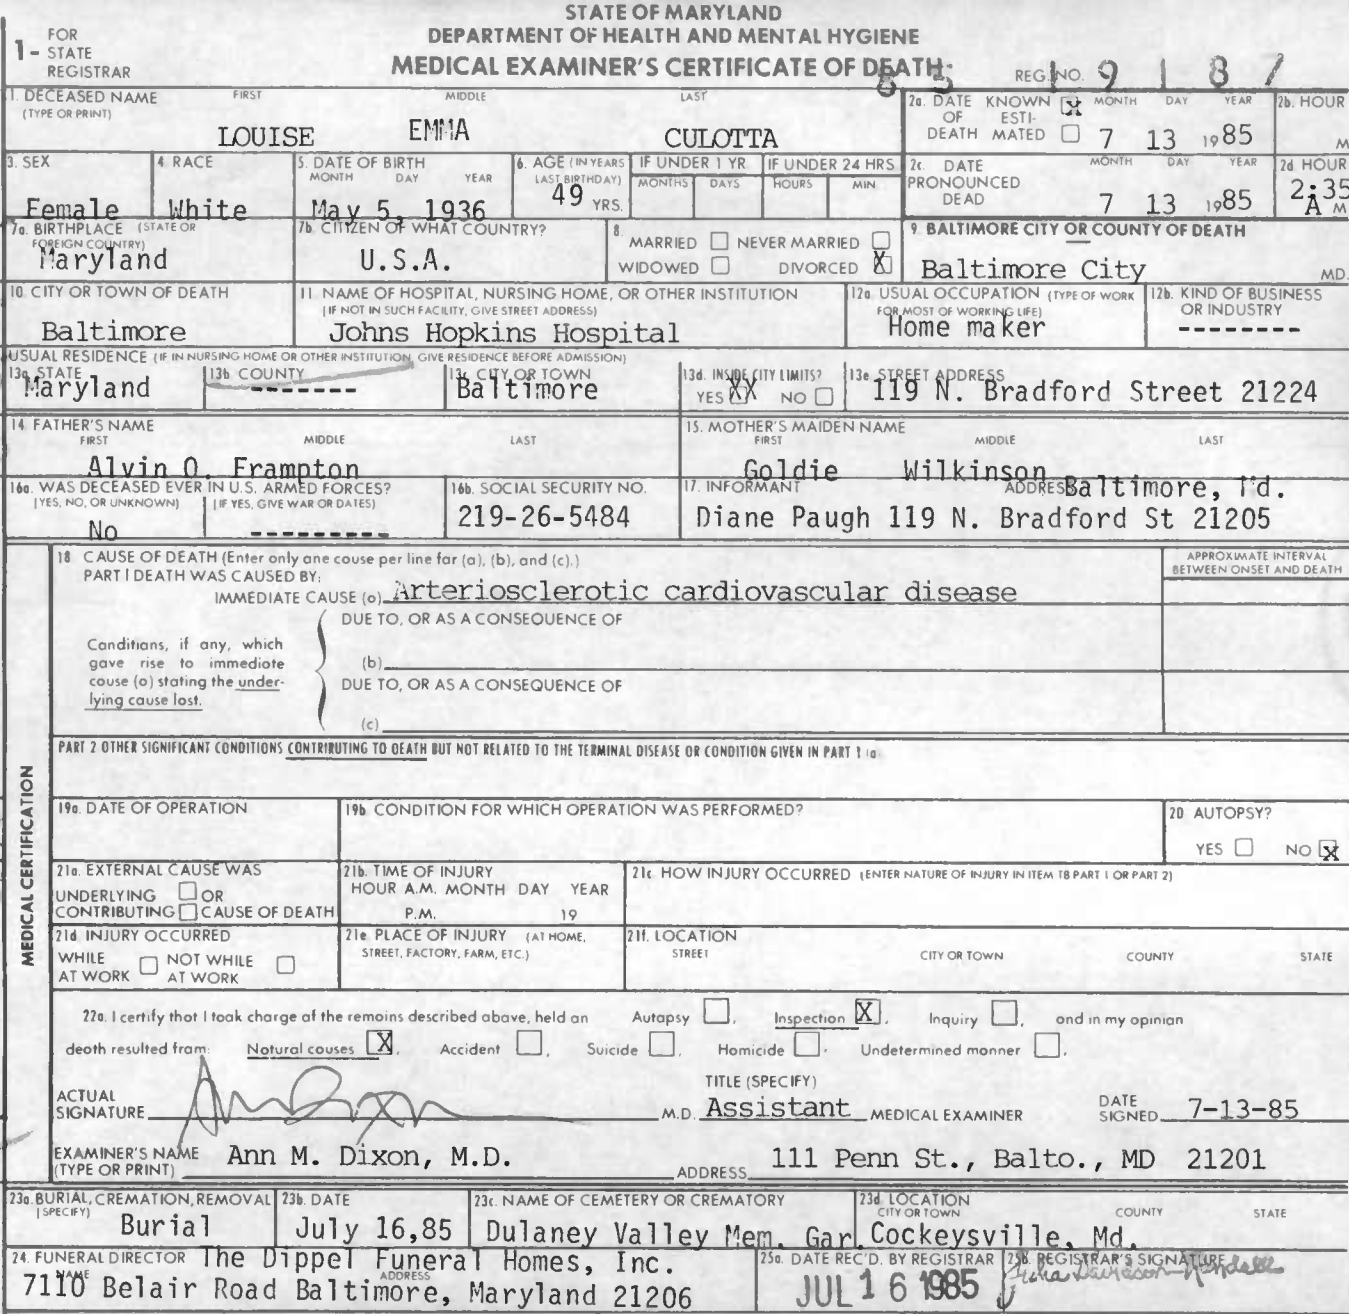 STATE OF MARYLAND
DEPARTMENT OF HEALTH AND MENTAL HYGIENE
MEDICAL EXAMINER'S CERTIFICATE OF DEATH
1- FOR STATE REGISTRAR
REG. NO. 85 19187
1. DECEASED NAME (TYPE OR PRINT) FIRST MIDDLE LAST
LOUISE EMMA CULOTTA
2a. DATE OF DEATH KNOWN [X] ESTIMATED [ ] MONTH DAY YEAR
7 13 1985
2b. HOUR M
3. SEX
Female
4. RACE
White
5. DATE OF BIRTH MONTH DAY YEAR
May 5, 1936
6. AGE (IN YEARS LAST BIRTHDAY)
49 YRS.
IF UNDER 1 YR. MONTHS DAYS
IF UNDER 24 HRS. HOURS MIN.
2c. DATE PRONOUNCED DEAD MONTH DAY YEAR
7 13 1985
2d. HOUR
2:35 A M
7a. BIRTHPLACE (STATE OR FOREIGN COUNTRY)
Maryland
7b. CITIZEN OF WHAT COUNTRY?
U.S.A.
8. MARRIED [ ] NEVER MARRIED [ ]
WIDOWED [ ] DIVORCED [X]
9. BALTIMORE CITY OR COUNTY OF DEATH
Baltimore City MD.
10. CITY OR TOWN OF DEATH
Baltimore
11. NAME OF HOSPITAL, NURSING HOME, OR OTHER INSTITUTION
(IF NOT IN SUCH FACILITY, GIVE STREET ADDRESS)
Johns Hopkins Hospital
12a. USUAL OCCUPATION (TYPE OF WORK FOR MOST OF WORKING LIFE)
Home maker
12b. KIND OF BUSINESS OR INDUSTRY
--------
USUAL RESIDENCE (IF IN NURSING HOME OR OTHER INSTITUTION, GIVE RESIDENCE BEFORE ADMISSION)
13a. STATE
Maryland
13b. COUNTY
-------
13c. CITY OR TOWN
Baltimore
13d. INSIDE CITY LIMITS?
YES XX NO [ ]
13e. STREET ADDRESS
119 N. Bradford Street 21224
14. FATHER'S NAME FIRST MIDDLE LAST
Alvin O. Frampton
15. MOTHER'S MAIDEN NAME FIRST MIDDLE LAST
Goldie Wilkinson
16a. WAS DECEASED EVER IN U.S. ARMED FORCES?
(YES, NO, OR UNKNOWN) (IF YES, GIVE WAR OR DATES)
No ---------
16b. SOCIAL SECURITY NO.
219-26-5484
17. INFORMANT ADDRESS Baltimore, Md.
Diane Paugh 119 N. Bradford St 21205
MEDICAL CERTIFICATION
18 CAUSE OF DEATH (Enter only one cause per line for (a), (b), and (c).)
PART I DEATH WAS CAUSED BY:
IMMEDIATE CAUSE (a) Arteriosclerotic cardiovascular disease
APPROXIMATE INTERVAL BETWEEN ONSET AND DEATH
DUE TO, OR AS A CONSEQUENCE OF
Conditions, if any, which gave rise to immediate cause (a) stating the underlying cause last.
(b)
DUE TO, OR AS A CONSEQUENCE OF
(c)
PART 2 OTHER SIGNIFICANT CONDITIONS CONTRIBUTING TO DEATH BUT NOT RELATED TO THE TERMINAL DISEASE OR CONDITION GIVEN IN PART 1 (a)
19a. DATE OF OPERATION
19b. CONDITION FOR WHICH OPERATION WAS PERFORMED?
20 AUTOPSY?
YES [ ] NO [X]
21a. EXTERNAL CAUSE WAS
UNDERLYING [ ] OR
CONTRIBUTING [ ] CAUSE OF DEATH
21b. TIME OF INJURY
HOUR A.M. MONTH DAY YEAR
P.M. 19
21c. HOW INJURY OCCURRED (ENTER NATURE OF INJURY IN ITEM 18 PART 1 OR PART 2)
21d. INJURY OCCURRED
WHILE AT WORK [ ] NOT WHILE AT WORK [ ]
21e. PLACE OF INJURY (AT HOME, STREET, FACTORY, FARM, ETC.)
21f. LOCATION
STREET CITY OR TOWN COUNTY STATE
22a. I certify that I took charge of the remains described above, held an Autopsy [ ], Inspection [X], Inquiry [ ], and in my opinion
death resulted from: Natural causes [X], Accident [ ], Suicide [ ], Homicide [ ], Undetermined manner [ ],
ACTUAL SIGNATURE M.D.
TITLE (SPECIFY)
Assistant MEDICAL EXAMINER
DATE SIGNED 7-13-85
EXAMINER'S NAME (TYPE OR PRINT) Ann M. Dixon, M.D.
ADDRESS 111 Penn St., Balto., MD 21201
23a. BURIAL, CREMATION, REMOVAL (SPECIFY)
Burial
23b. DATE
July 16,85
23c. NAME OF CEMETERY OR CREMATORY
Dulaney Valley Mem. Gar.
23d. LOCATION CITY OR TOWN COUNTY STATE
Cockeysville, Md.
24. FUNERAL DIRECTOR The Dippel Funeral Homes, Inc.
NAME ADDRESS
7110 Belair Road Baltimore, Maryland 21206
25a. DATE REC'D. BY REGISTRAR
JUL 16 1985
25b. REGISTRAR'S SIGNATURE